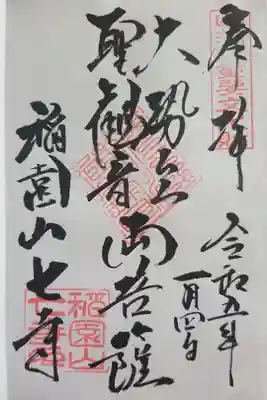 奉拝
令和五年
一月四日
大勢至
聖観音
両菩薩
稲園山七寺
稲園山